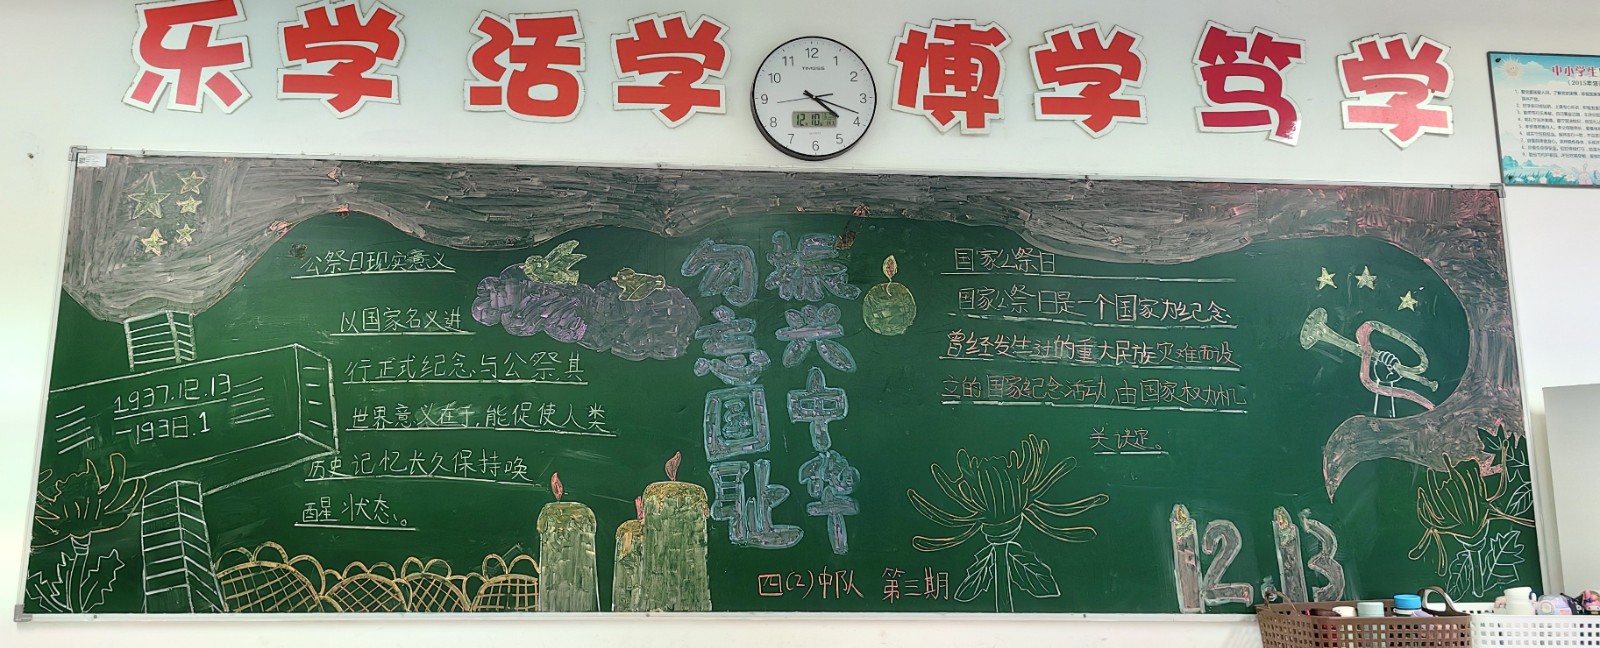 乐学 活学 博学 笃学
12
1
2
3
4
5
6
7
8
9
10
11
TIMESS
12.10
中小学生
公祭日现实意义
以国家名义进
行正式纪念与公祭其
世界意义在于,能促使人类
历史记忆长久保持唤
醒状态。
1937.12.13
-1938.1
勿忘国耻
振兴中华
国家公祭日
国家公祭日是一个国家为纪念
曾经发生过的重大民族灾难而设
立的国家纪念活动,由国家权力机
关决定。
四(2)中队 第三期
12 13